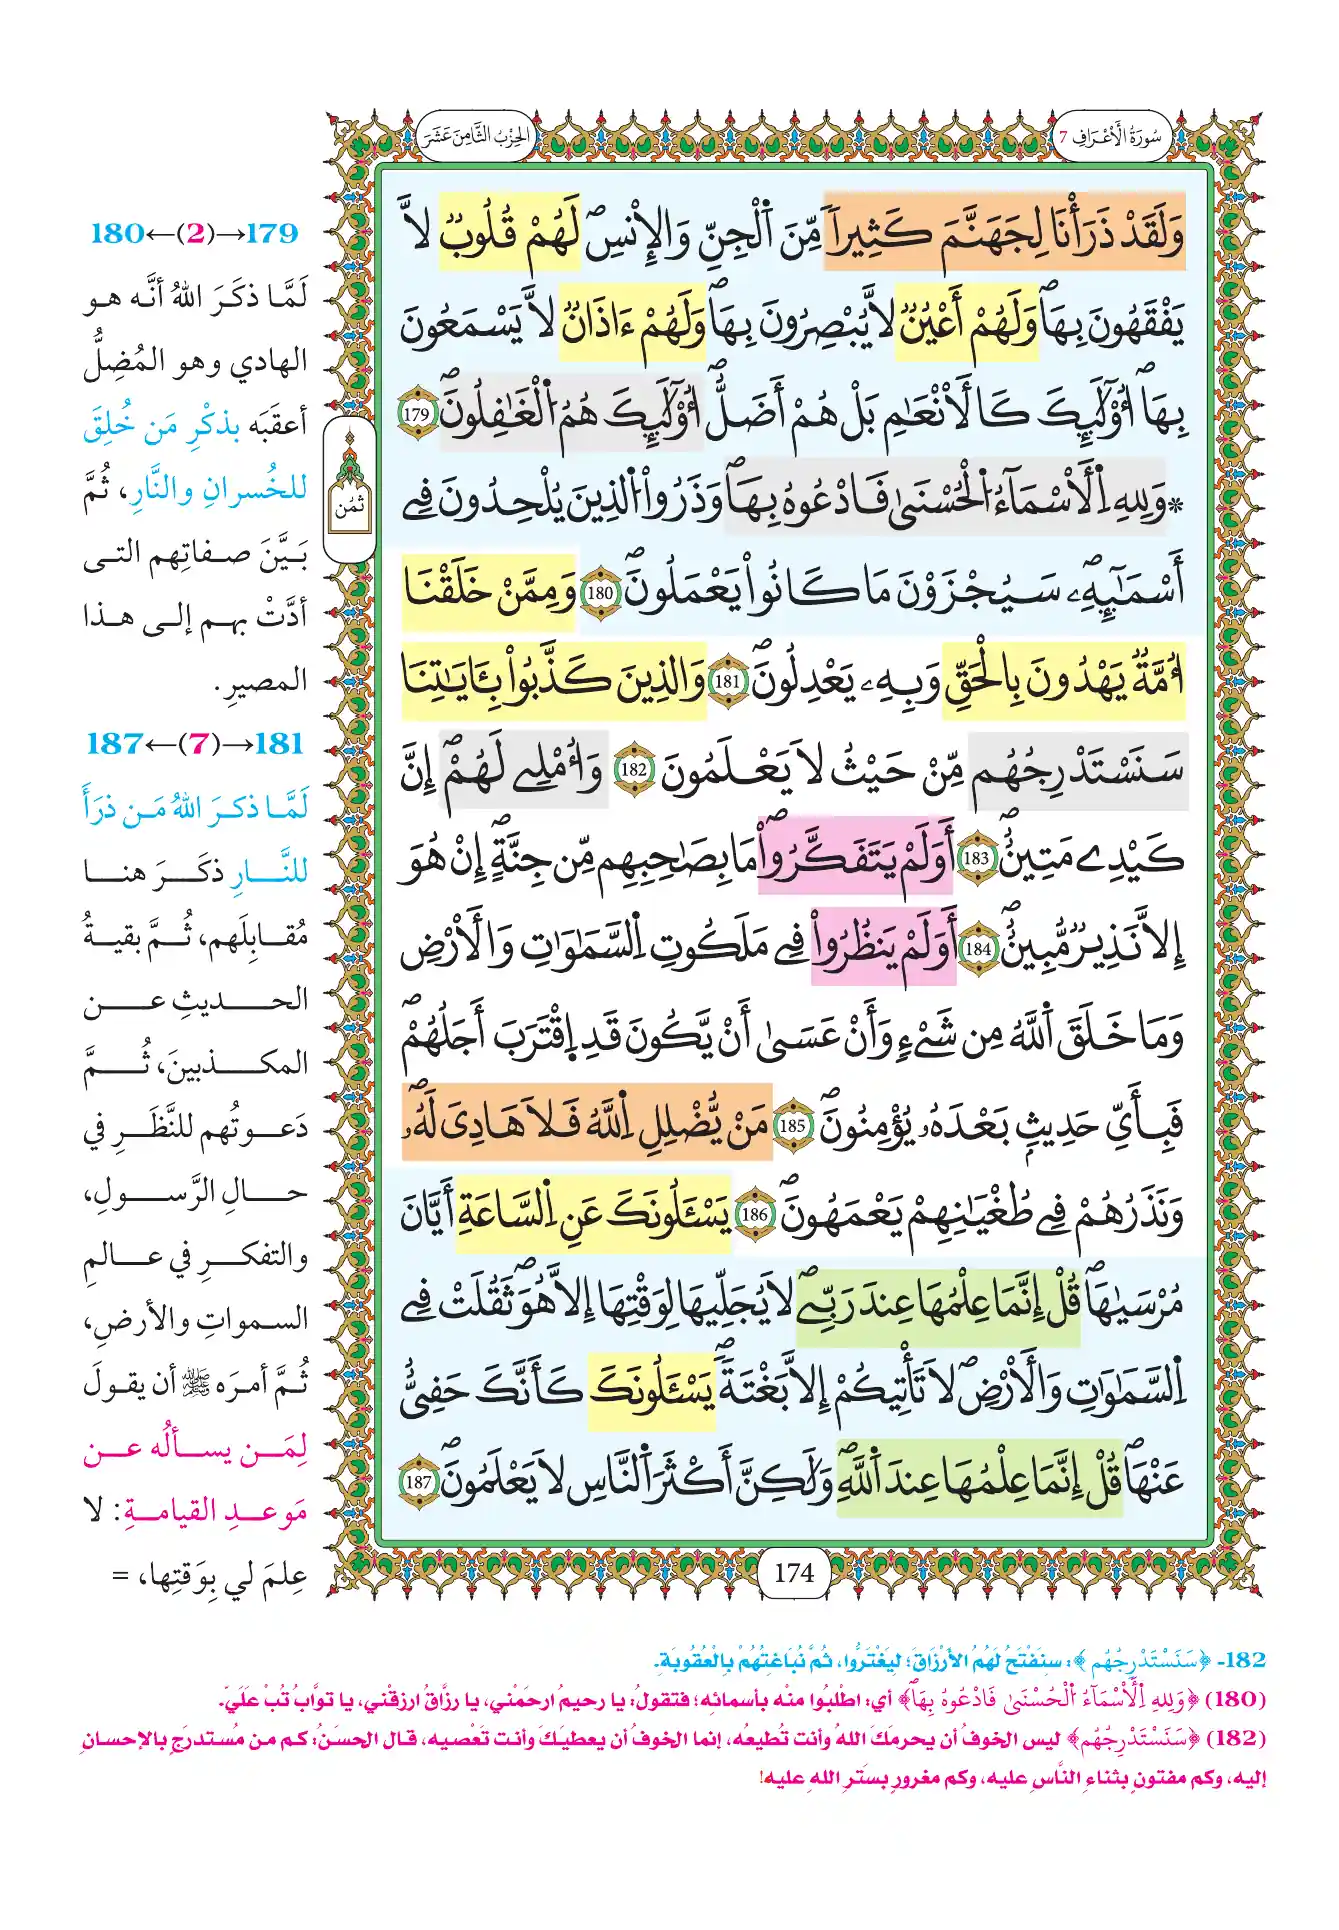 سُورَةُ الْأَعْرَافِ 7
الحِزْبُ الثَّامِنَ عَشَرَ
وَلَقَدْ ذَرَأْنَا لِجَهَنَّمَ كَثِيراٗ مِّنَ اَ۬لْجِنِّ وَالِانْسِۖ لَهُمْ قُلُوبٞ لَّا
يَفْقَهُونَ بِهَاۖ وَلَهُمْ أَعْيُنٞ لَّا يُبْصِرُونَ بِهَاۖ وَلَهُمْ ءَاذَانٞ لَّا يَسْمَعُونَ
بِهَاۖ أُوْلَٰٓئِكَ كَالَانْعَٰمِ بَلْ هُمْ أَضَلُّۖ أُوْلَٰٓئِكَ هُمُ اُ۬لْغَٰفِلُونَۖ 179
* وَلِلهِ اِ۬لَاسْمَآءُ اُ۬لْحُسْنَىٰ فَادْعُوهُ بِهَاۖ وَذَرُواْ اُ۬لذِينَ يُلْحِدُونَ فِےٓ
أَسْمَٰٓئِهِۦۖ سَيُجْزَوْنَ مَا كَانُواْ يَعْمَلُونَۖ 180 وَمِمَّنْ خَلَقْنَآ
أُمَّةٞ يَهْدُونَ بِالْحَقِّ وَبِهِۦ يَعْدِلُونَۖ 181 وَالذِينَ كَذَّبُواْ بِـَٔايَٰتِنَا
سَنَسْتَدْرِجُهُم مِّنْ حَيْثُ لَا يَعْلَمُونَ 182 وَأُمْلِے لَهُمْۖ إِنَّ
كَيْدِے مَتِينٌۖ 183 أَوَلَمْ يَتَفَكَّرُواْۖ مَا بِصَاحِبِهِم مِّن جِنَّةٍۖ اِنْ هُوَ
إِلَّا نَذِيرٞ مُّبِينٌۖ 184 أَوَلَمْ يَنظُرُواْ فِے مَلَكُوتِ اِ۬لسَّمَٰوَٰتِ وَالَارْضِ
وَمَا خَلَقَ اَ۬للَّهُ مِن شَےْءٖ وَأَنْ عَسَىٰٓ أَنْ يَّكُونَ قَدِ اِ۪قْتَرَبَ أَجَلُهُمْۖ
فَبِأَيِّ حَدِيثِۢ بَعْدَهُۥ يُؤْمِنُونَۖ 185 مَنْ يُّضْلِلِ اِ۬للَّهُ فَلَا هَادِيَ لَهُۥۖ
وَنَذَرُهُمْ فِے طُغْيَٰنِهِمْ يَعْمَهُونَۖ 186 يَسْـَٔلُونَكَ عَنِ اِ۬لسَّاعَةِ أَيَّانَ
مُرْسَىٰهَاۖ قُلِ اِنَّمَا عِلْمُهَا عِندَ رَبِّےۖ لَا يُجَلِّيهَا لِوَقْتِهَآ إِلَّا هُوَۖ ثَقُلَتْ فِے
اِ۬لسَّمَٰوَٰتِ وَالَارْضِۖ لَا تَأْتِيكُمُۥٓ إِلَّا بَغْتَةٗۖ يَسْـَٔلُونَكَ كَأَنَّكَ حَفِيٌّ
عَنْهَاۖ قُلِ اِنَّمَا عِلْمُهَا عِندَ اَ۬للَّهِۖ وَلَٰكِنَّ أَكْثَرَ اَ۬لنَّاسِ لَا يَعْلَمُونَۖ 187
ثُمُن
174
179→(2)←180
لَمَّا ذكَرَ اللهُ أنَّه هو
الهادي وهو المُضِلُّ
أعقبَه بذكْرِ مَن خُلِقَ
للخُسرانِ والنَّارِ، ثُمَّ
بَيَّنَ صفاتِهم التى
أدَّتْ بهم إلى هذا
المصيرِ.
181→(7)←187
لَمَّا ذكرَ اللهُ مَن ذرَأَ
للنَّارِ ذكَرَ هنا
مُقابِلَهم، ثُمَّ بقيةُ
الحديثِ عن
المكذبينَ، ثُمَّ
دَعوتُهم للنَّظَرِ في
حالِ الرَّسولِ،
والتفكرِ في عالمِ
السمواتِ والأرضِ،
ثُمَّ أمرَه ﷺ أن يقولَ
لِمَن يسألُه عن
مَوعدِ القيامةِ: لا
عِلمَ لي بِوَقتِها، =
182- ﴿سَنَسْتَدْرِجُهُم﴾: سنَفْتَحُ لَهُمُ الأرْزَاقَ؛ ليَغْتَرُّوا، ثُمَّ نُبَاغِتُهُمْ بِالْعُقُوبَةِ.
(180) ﴿وَلِلهِ اِ۬لَاسْمَآءُ اُ۬لْحُسْنَىٰ فَادْعُوهُ بِهَاۖ﴾ أي: اطْلبُوا منْه بأسمائِه؛ فتقولُ: يا رحيمُ ارحَمْني، يا رزَّاقُ ارزقْني، يا توَّابُ تُبْ عَلَيَّ.
(182) ﴿سَنَسْتَدْرِجُهُم﴾ ليس الخوفُ أن يحرمَكَ اللهُ وأنت تُطيعُه، إنما الخوفُ أن يعطيَكَ وأنت تَعْصيه، قال الحسَنُ: كم من مُستدرَجٍ بالإحسانِ
إليه، وكم مفتونٍ بثناءِ النَّاسِ عليه، وكم مغرورٍ بسَترِ اللهِ عليه!